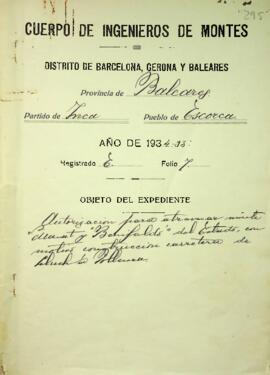 295
CUERPO DE INGENIEROS DE MONTES
DISTRITO DE BARCELONA, GERONA Y BALEARES
Provincia de Baleares
Partido de Inca Pueblo de Escorca
AÑO DE 1934-35
Registrado E Folio 7
OBJETO DEL EXPEDIENTE
Autorización para atravesar monte
y "Binifaldó" del Estado, con
motivo construcción carretera de
Lluch a Pollensa.